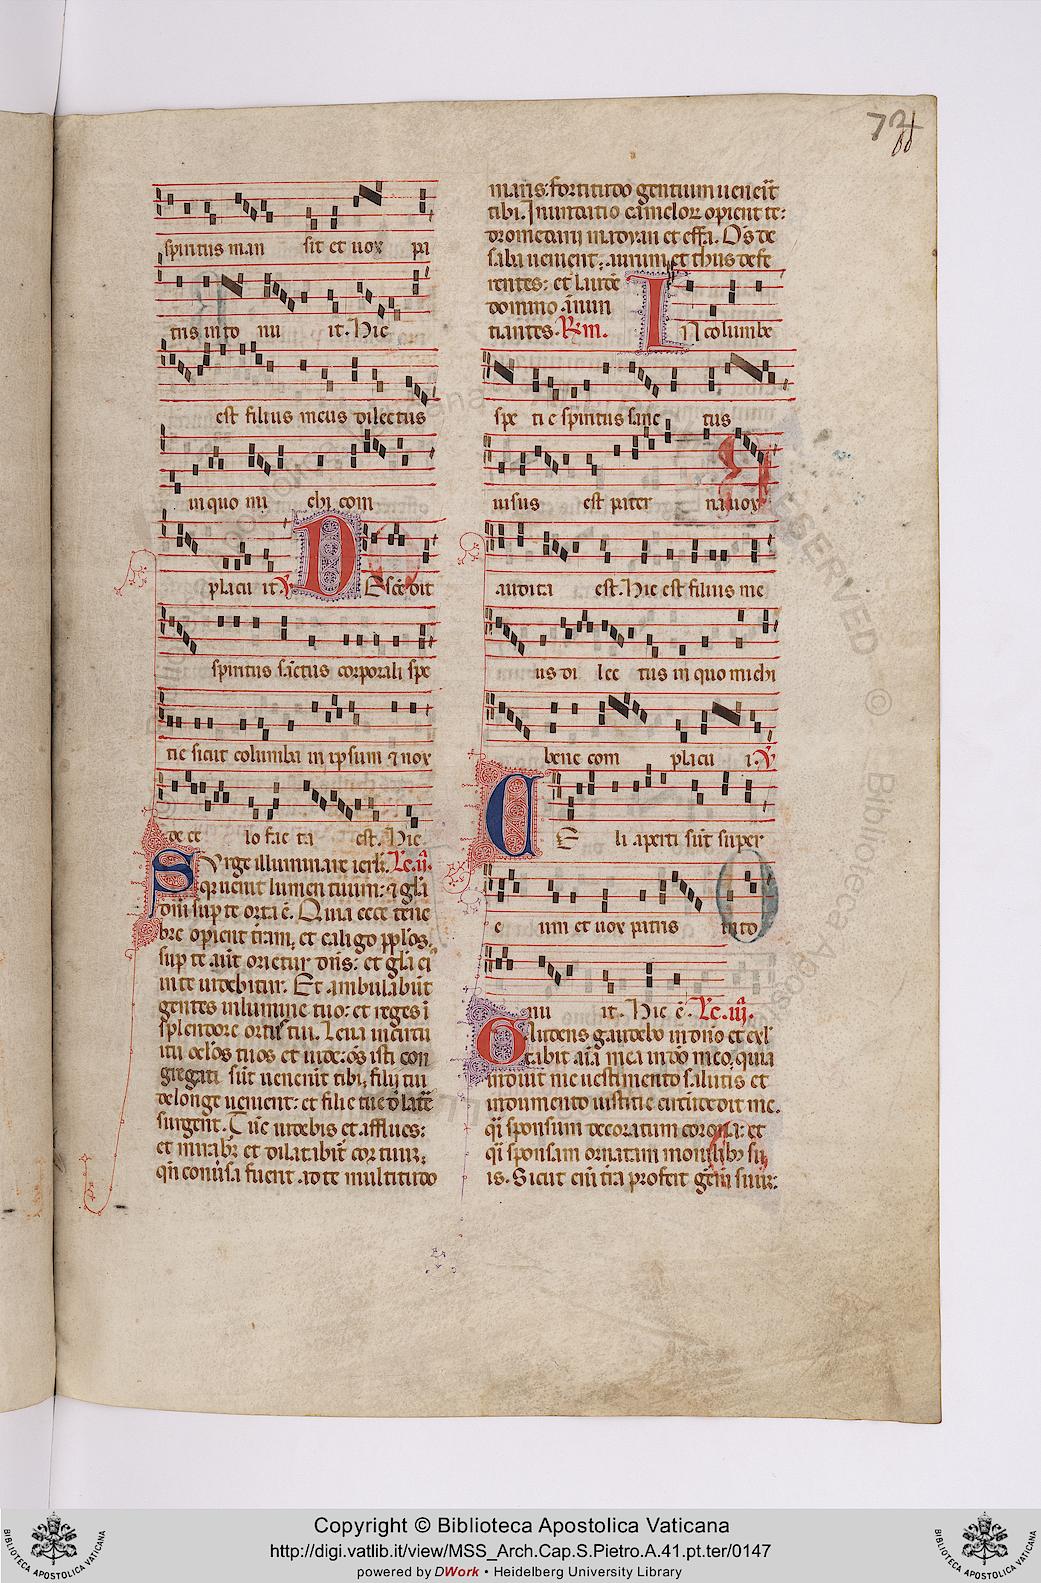 72
spiritus man sit et uox pa
tris into nu it. Hic
est filius meus dilectus
in quo mi chi com
placu it. ℣ Descēdit
spiritus sāctus corporali spe
tie sicut columba in ipsum ⁊ uox
de ce lo facta est. Hic
Surge illuminare ierl̄m. Le. ii.
q̄r uenit lumen tuum: ⁊ gl̄a
dn̄i sup te orta ē. Quia ecce tene
bre operient trām, et caligo pp̄los.
sup te aūt orietur dn̄s: et gl̄a ei
in te uidebitur. Et ambulabūt
gentes in lumine tuo: et reges ī
splendore ortus tui. Leua in circu
itu ocl̄os tuos et uide: oēs isti con
gregati sūt uenerūt tibi, filij tui
de longe uenient: et filie tue d̄ latē
surgent. Tūc uidebis et afflues:
et mirabr̄ et dilatabit̄ cor tuum,
qn̄ conūsa fuerit ad te multitudo
maris: fortitudo gentium uenerit
tibi. Inundatio camelor̄ operiet te:
dromedarij madyan et effa. Oēs de
saba uenient: aurum et thus defe
rentes: et laudē
domino ānun
tiantes. Rm̄. In columbe
spe ti e spiritus sanc tus
uisus est pater na uox
audita est. Hic est filius me
us di lec tus in quo michi
bene com placu i. ℣
Ce li aperti sūt super
e um et uox patris into
nu it. Hic ē. Le. iij.
Gaudens gaudebo in dn̄o et exl̄
tabit aīa mea in dō meo, quia
induit me uestimento salutis et
indumento iustitie circūdedit me.
q̄i sponsum decoratum corona: et
q̄i sponsam ornatam monilibȝ su
is. Sicut eni tr̄a profert germen suum:
RESERVED © Biblioteca Apostolica
Copyright © Biblioteca Apostolica Vaticana
http://digi.vatlib.it/view/MSS_Arch.Cap.S.Pietro.A.41.pt.ter/0147
powered by DWork • Heidelberg University Library
BIBLIOTECA APOSTOLICA VATICANA
BIBLIOTECA APOSTOLICA VATICANA